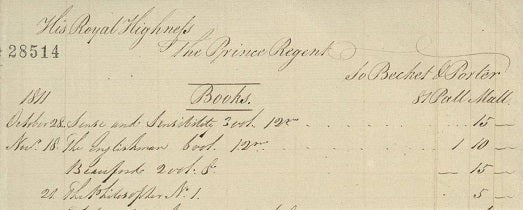 His Royal Highness
28514
The Prince Regent
To Becket & Porter
1811
Books.
81 Pall Mall.
October 28. Sense and Sensibility 3 vol. 12mo — 15 —
Novr. 18. The Englishman 6 vol. 12mo 1 10 —
Beauford 2 vol. 8o — 15 —
21. The Philosopher No. 1. — 5 —